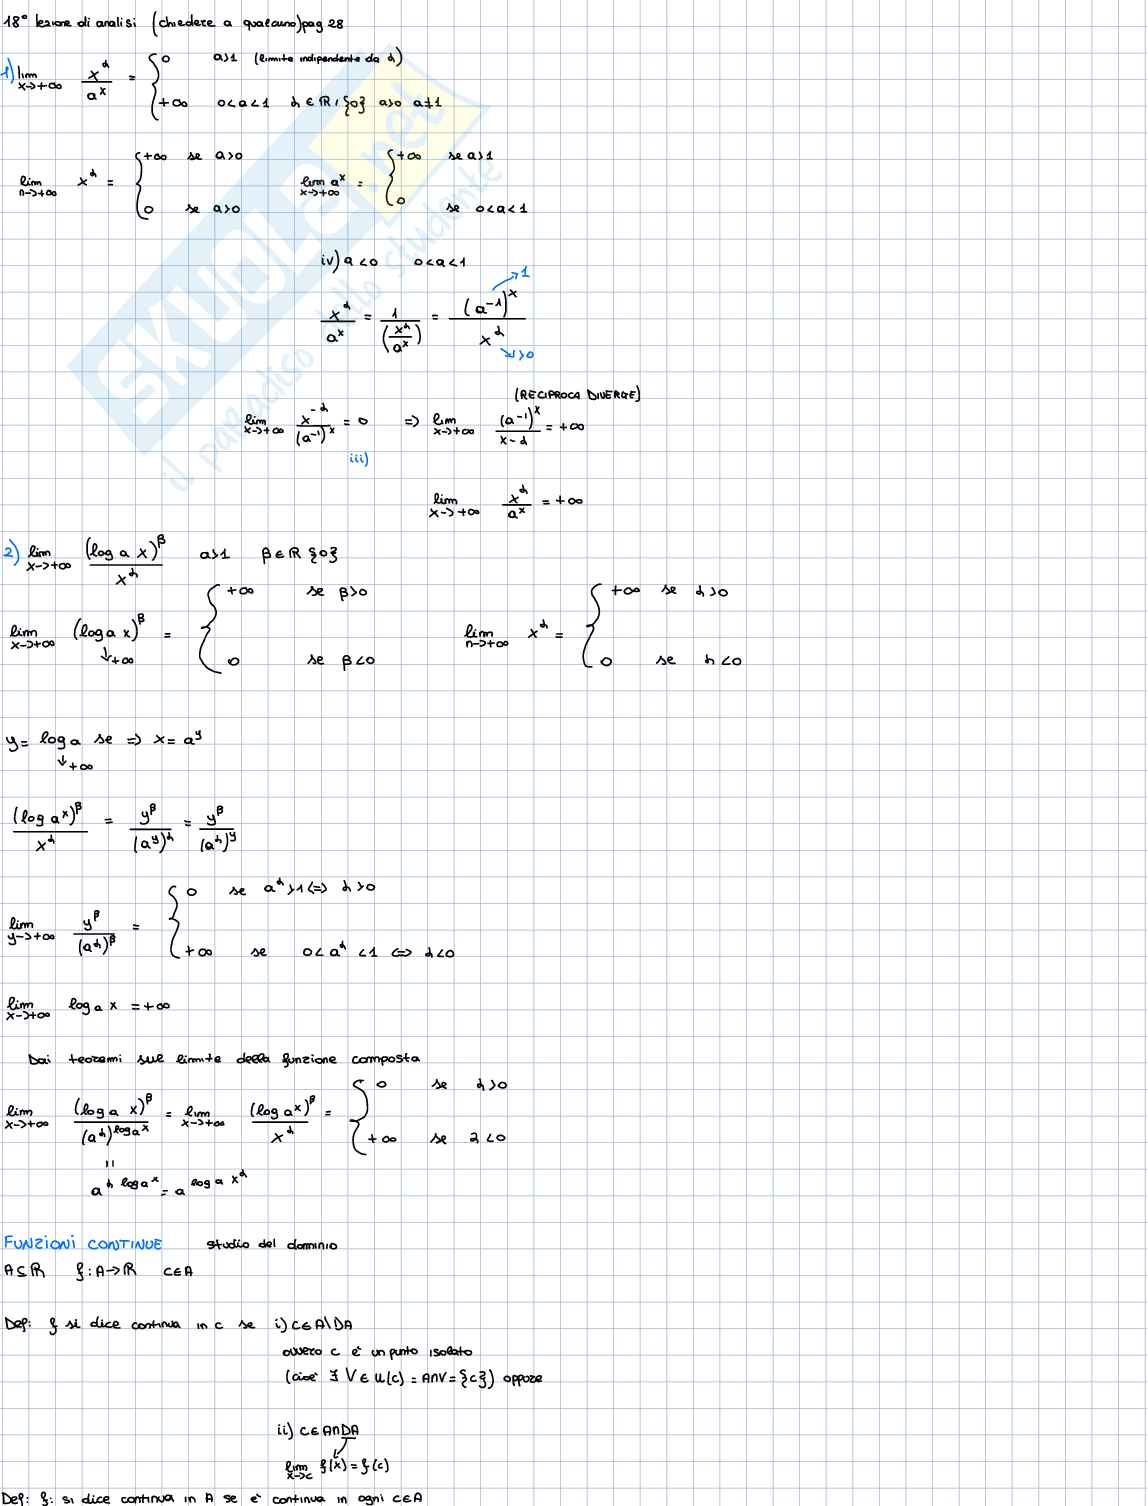 18° lezione di analisi (chiedere a qualcuno) pag 28
1) lim x->+∞ x^α / a^x = { 0 a>1 (limite indipendente da α)
+∞ 0<a<1 α ∈ ℝ \ {0} a>0 a≠1
lim n->+∞ x^α = { +∞ se a>0
0 se a>0
lim x->+∞ a^x = { +∞ se a>1
0 se 0<a<1
iv) a<0 0<a<1
x^α / a^x = 1 / (x^α / a^x) = (a^-1)^x / x^α
->1
>0
(RECIPROCA DIVERGE)
lim x->+∞ x^-α / (a^-1)^x = 0 => lim x->+∞ (a^-1)^x / x-α = +∞
iii)
lim x->+∞ x^α / a^x = +∞
2) lim x->+∞ (log a x)^β / x^α a>1 β∈ℝ {0}
lim x->+∞ (log a x)^β = { +∞ se β>0
↓+∞
0 se β<0
lim n->+∞ x^α = { +∞ se α>0
0 se α<0
y= log a se => x= a^y
↓+∞
(log a^x)^β / x^α = y^β / (a^y)^α = y^β / (a^α)^y
lim y->+∞ y^β / (a^α)^β = { 0 se a^α>1 <=> α>0
+∞ se 0<a^α<1 <=> α<0
lim x->+∞ log a x = +∞
Dai teoremi sul limite della funzione composta
lim x->+∞ (log a x)^β / (a^α)^log a^x = lim x->+∞ (log a^x)^β / x^α = { 0 se α>0
+∞ se 2<0
=
a^α log a^x = a^log a x^α
FUNZIONI CONTINUE studio del dominio
A⊆ℝ f:A->ℝ c∈A
Def: f si dice continua in c se i) c∈A\DA
ovvero c è un punto isolato
(cioè ∃ V ∈ U(c) = A∩V={c}) oppure
ii) c∈A∩DA
lim x->c f(x) = f(c)
Def: f: si dice continua in A se è continua in ogni c∈A
SKUOLA.net
il paradiso dello studente